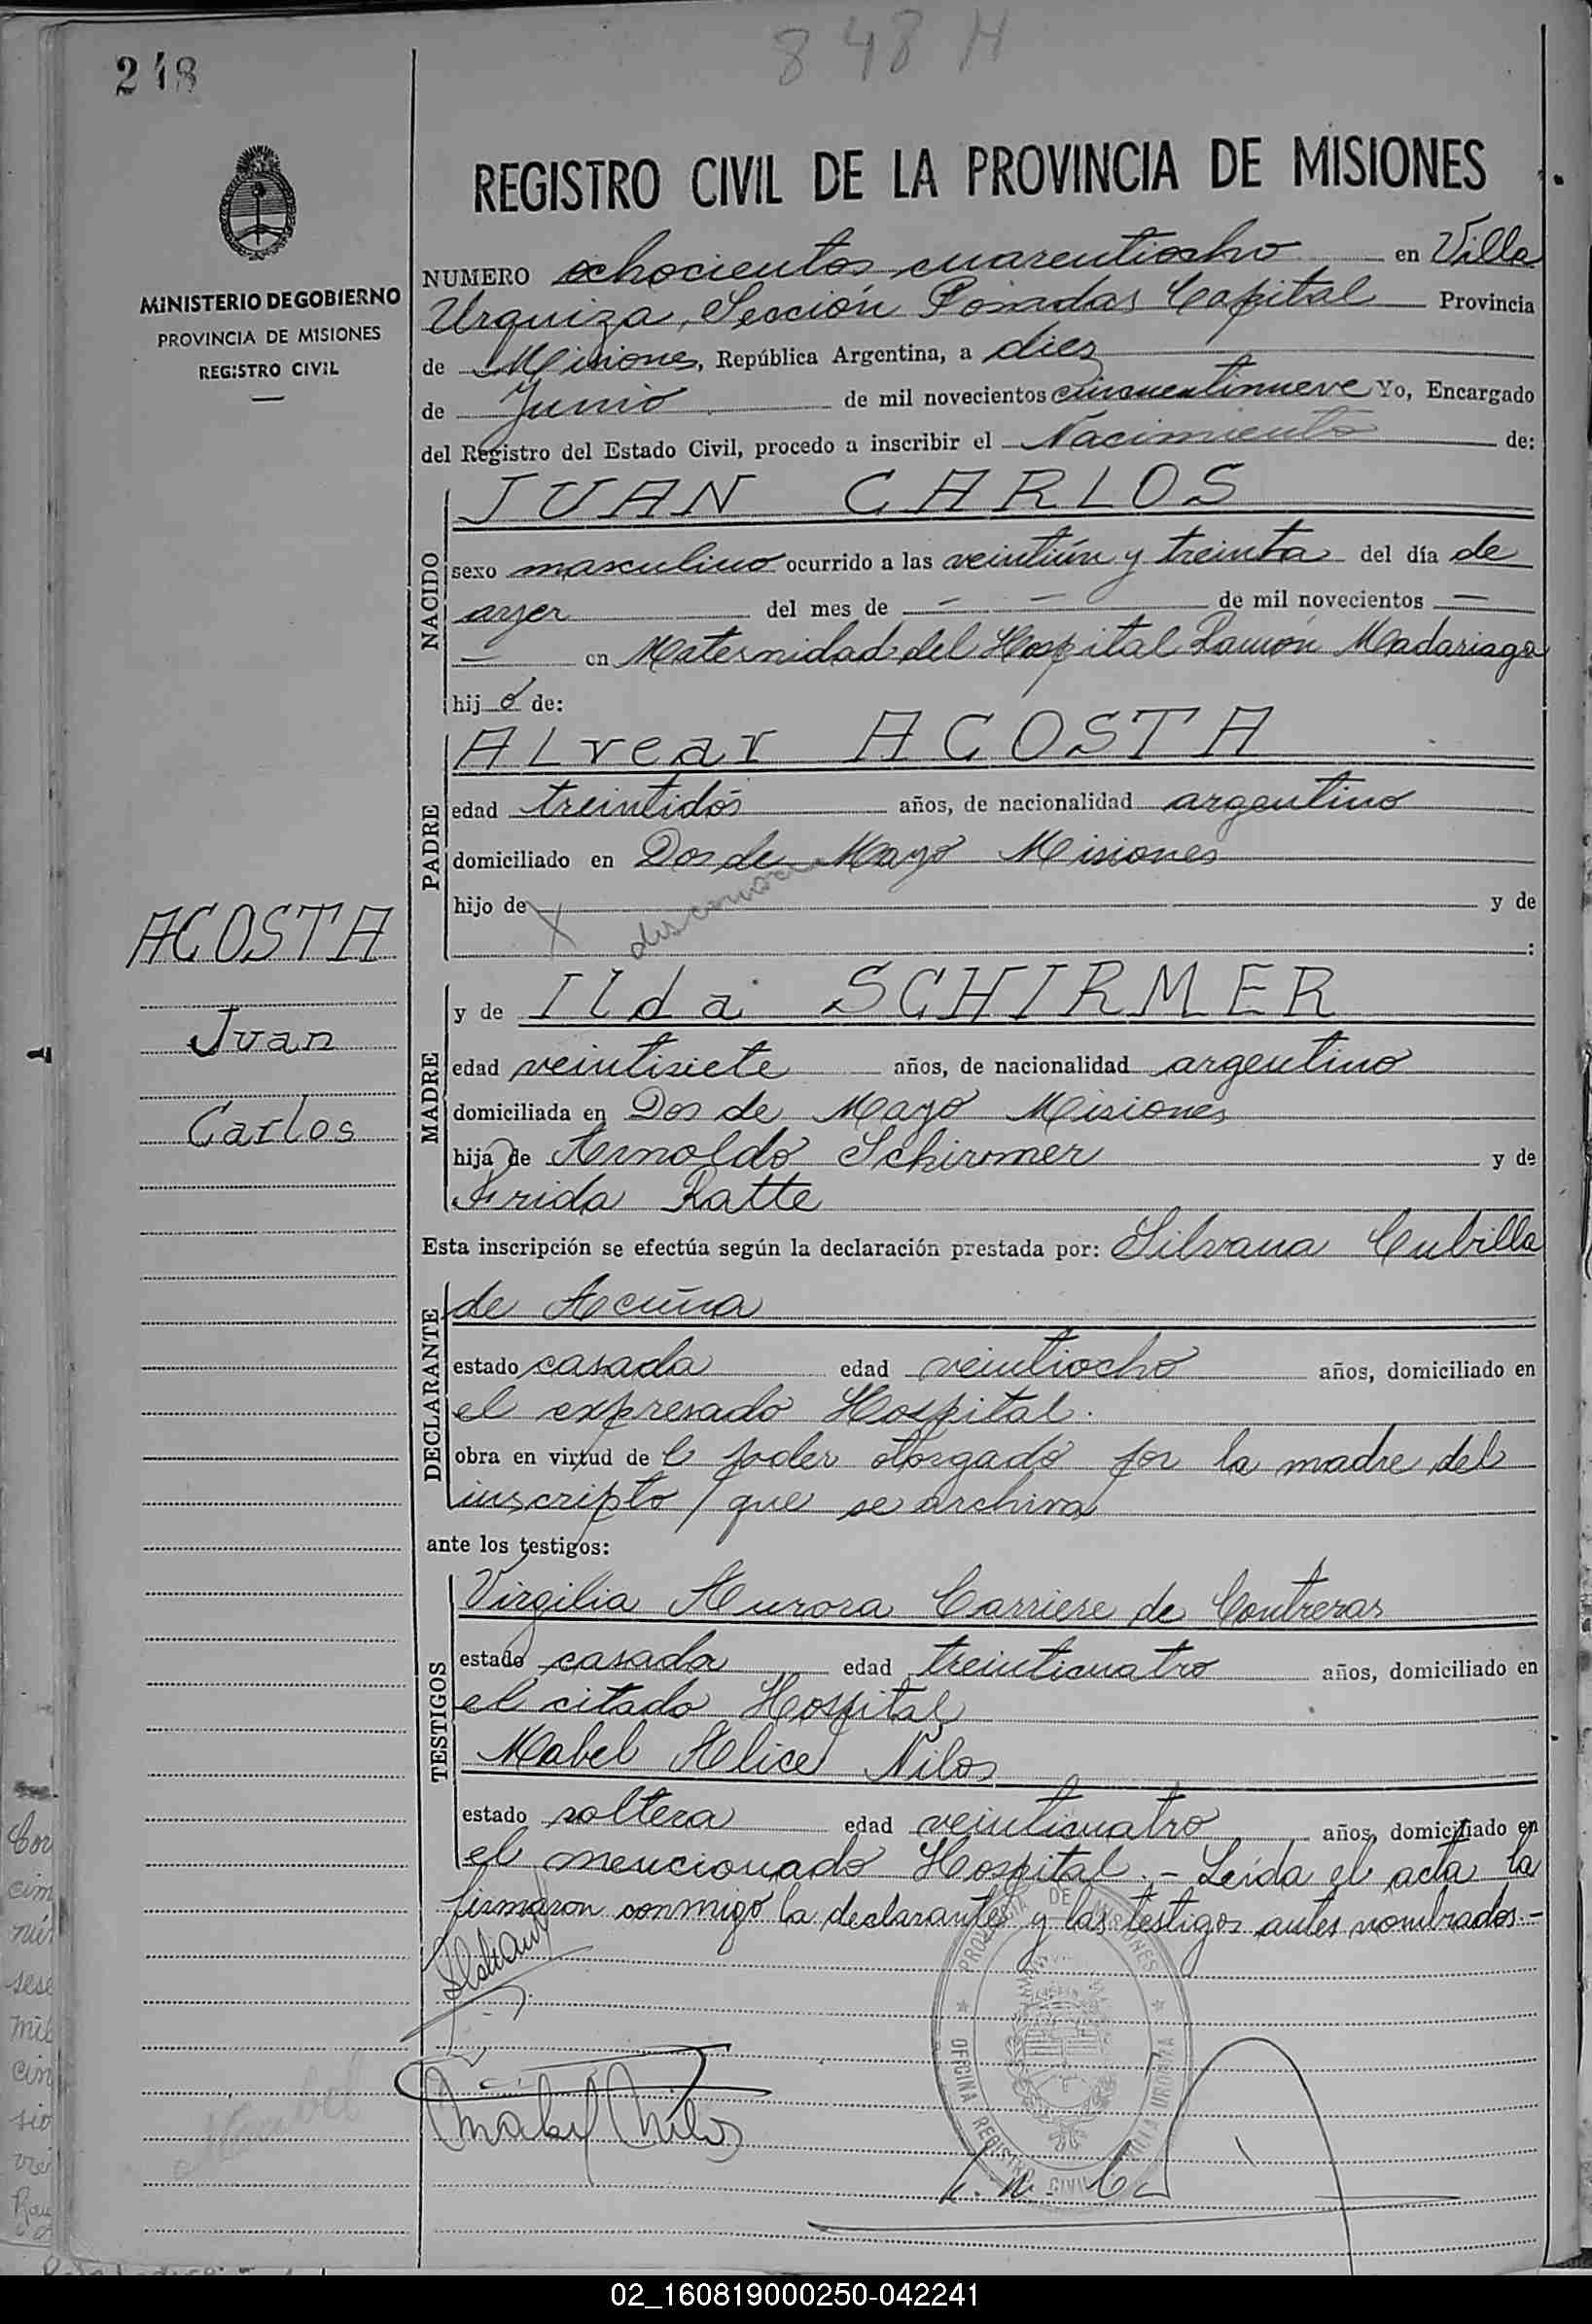 248
848 H
MINISTERIO DE GOBIERNO
PROVINCIA DE MISIONES
REGISTRO CIVIL
REGISTRO CIVIL DE LA PROVINCIA DE MISIONES
NUMERO ochocientos cuarentiocho en Villa
Urquiza, Sección Posadas Capital Provincia
de Misiones, República Argentina, a diez
de Junio de mil novecientos cincuentinueve Yo, Encargado
del Registro del Estado Civil, procedo a inscribir el Nacimiento de:
NACIDO
JUAN CARLOS
sexo masculino ocurrido a las veintiún y treinta del día de
ayer del mes de — — de mil novecientos —
— en Maternidad del Hospital Ramón Madariaga
hijo de:
PADRE
ALvear ACOSTA
edad treintidós años, de nacionalidad argentino
domiciliado en Dos de Mayo Misiones
hijo de y de
:
ACOSTA
Juan
Carlos
MADRE
y de Ilda SCHIRMER
edad veintisiete años, de nacionalidad argentino
domiciliada en Dos de Mayo Misiones
hija de Arnoldo Schirmer y de
Frida Ratte
Esta inscripción se efectúa según la declaración prestada por: Silvana Cubilla
DECLARANTE
de Acuña
estado casada edad veintiocho años, domiciliado en
el expresado Hospital.
obra en virtud de l poder otorgado por la madre del
inscripto, que se archiva
ante los testigos:
TESTIGOS
Virgilia Aurora Carriere de Contreras
estado casada edad treinticuatro años, domiciliado en
el citado Hospital
Mabel Alice Nilos
estado soltera edad veinticuatro años, domiciliado en
el mencionado Hospital.- Leída el acta la
firmaron conmigo la declarante y las testigos antes nombrados.-
PROVINCIA DE MISIONES
OFICINA REGISTRO CIVIL VILLA URQUIZA
Mabel Nilos
02_160819000250-042241